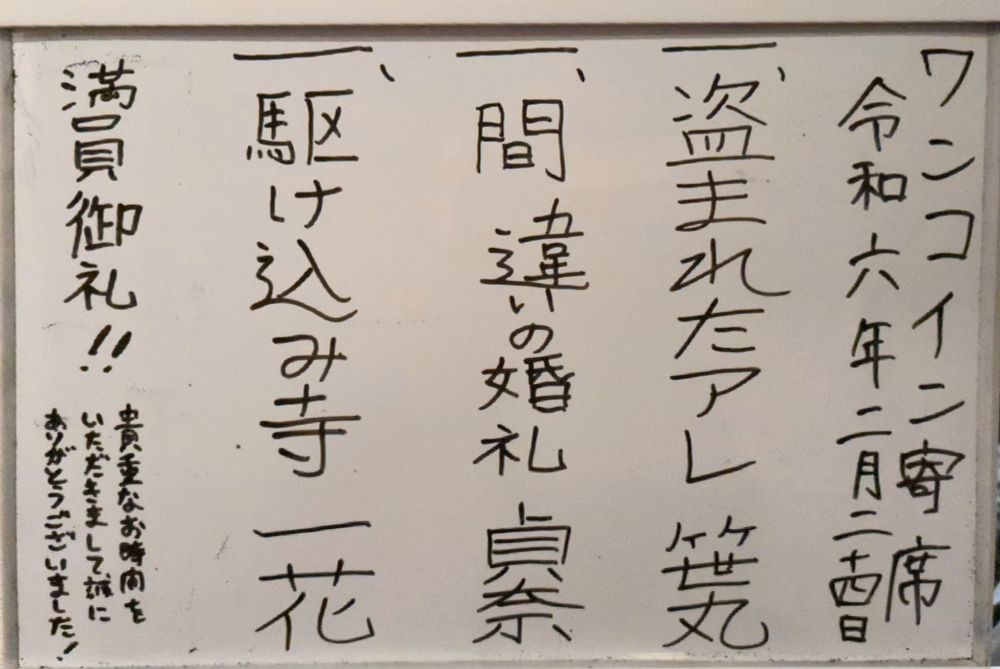 ワンコイン寄席
令和六年二月二十四日
一、盗まれたアレ 笹丸
一、間違いの婚礼 貞奈
一、駆け込み寺 一花
満員御礼!!
貴重なお時間を
いただきまして誠に
ありがとうございました!